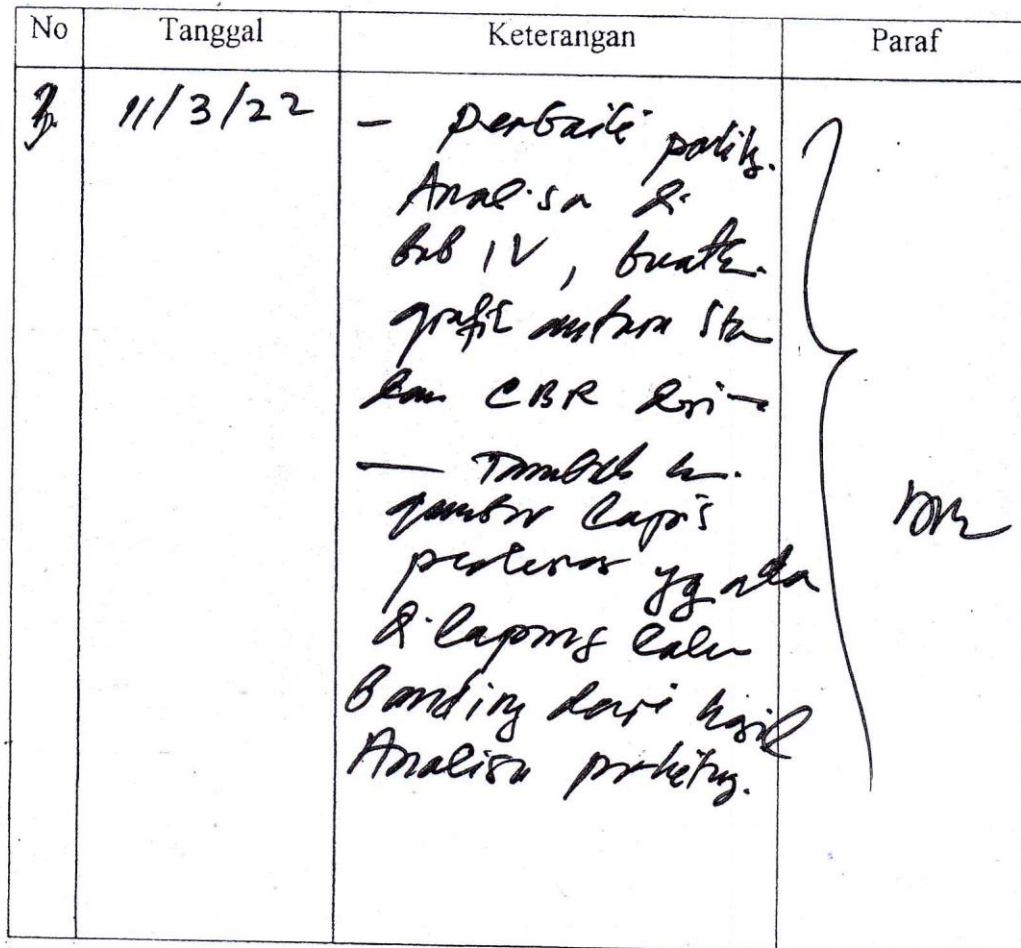 No Tanggal Keterangan Paraf
3. 11/3/22 - perbaiki
Analisa di
bab IV, buatk.
grafik antara Sta
dan CBR
- Tambah
gambar lapis
perkeras yg ada
di lapang lalu
Banding dari hasil
Analisa